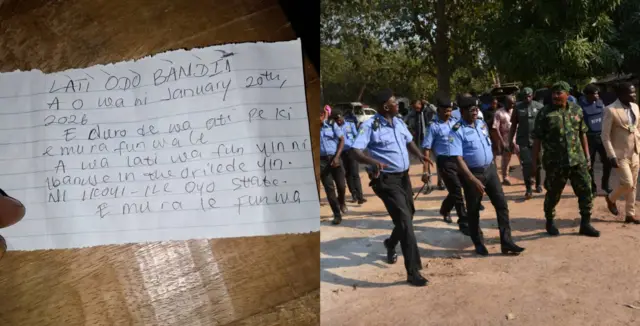 LATI ODO BANDIA
A O wa ni January 20th,
2026
E duro de wa ati pe ki
e mura fun wa le
A wa lati wa fun yin ni
ibanuje in the orilede yin.
NI IKOYI-ILE OYO State.
E mura le fun wa